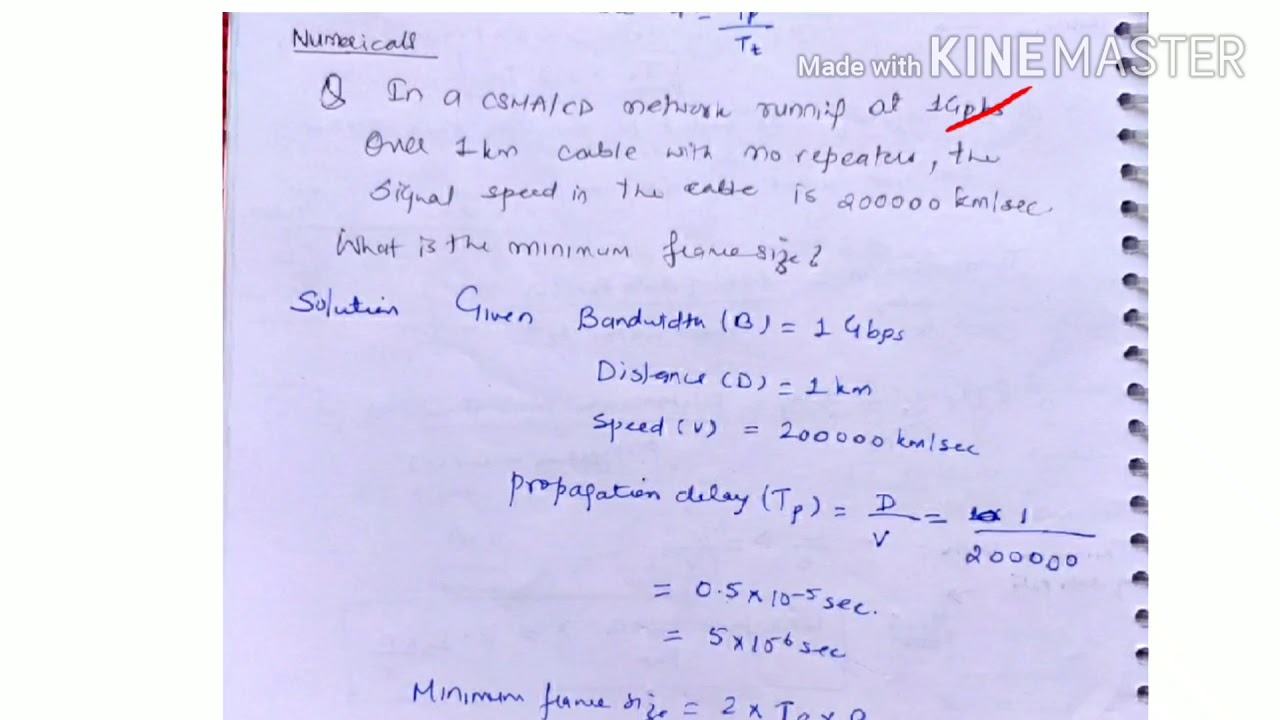 Tp
= ___
Tt
Made with KINEMASTER
Numericals
Q In a CSMA/CD network running at 1Gpbs
Over 1km cable with no repeaters, the
signal speed in the cable is 200000 km/sec.
What is the minimum frame size?
Solution Given Bandwidth (B) = 1 Gbps
Distance (D) = 1 km
Speed (V) = 200000 km/sec
Propagation delay (Tp) = D/V = 1/200000
= 0.5 × 10-5 sec.
= 5 × 10-6 sec
Minimum frame size = 2 × Tp × B